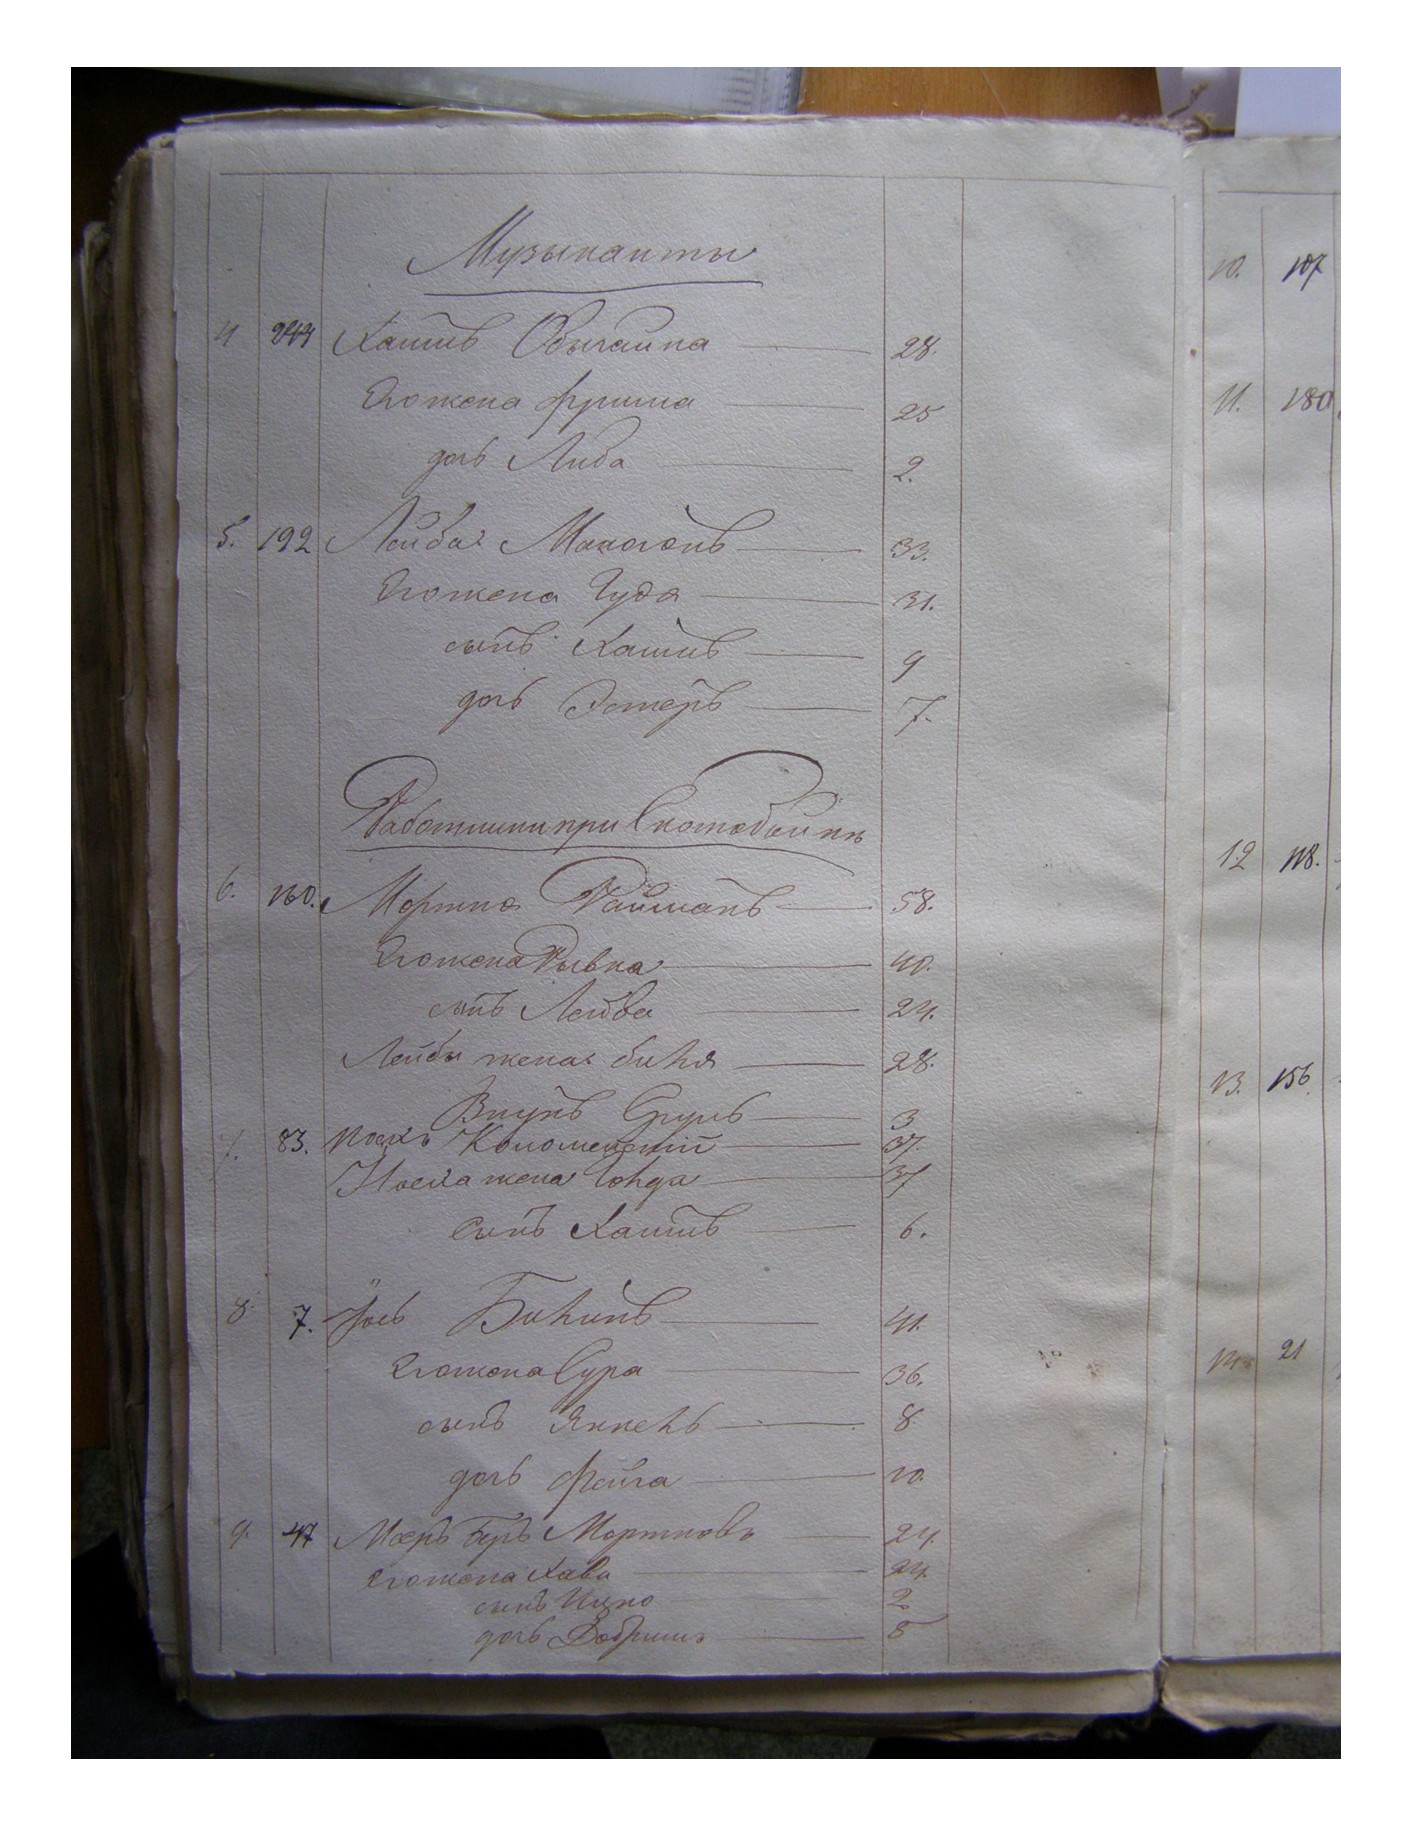 Музыканты
4 244 Хаимъ Обычайка 28.
Егожена Фрима 25
дочь Либа 2.
5. 192 Лейба Макогонъ 33.
Егожена Гуда 31.
сынъ Хаимъ 9
дочь Эстеръ 7.
Работники при Скотобойни
6. 160. Мортко Райманъ 58.
Егожена Рывка 40.
сынъ Лейба 24.
Лейбы жена 28.
Внукъ Сруль 3
7. 83. Коломенский 37.
жена Гольда 37
Сынъ Хаимъ 6.
8 7. Іось 41.
Егожена Сура 36.
сынъ Янкель 8
дочь Фейга 10.
9. 47 Меръ Беръ Мортковъ 24.
Егожена Хава 24.
сынъ Ицко 2
дочь 5
10. 107
11. 180
12 118.
13. 156
14. 21